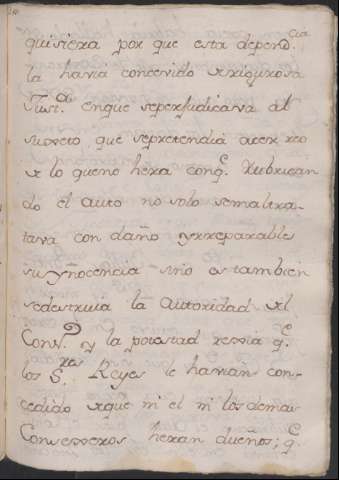 quisiera por que esta depend.cia
la havia concevido de rigurosa
Just.a en que se perjudicava al
sugeto que se pretendia acer reo
de lo que no hera con q.e Rubrican
do el auto no solo se maltra-
tava con daño yrreparable
su ynocencia sino es tambien
se destruia la Autoridad del
Cons.o y la potestad regia q.e
los S.res Reyes le havian con-
cedido de que ni el ni los demas
Consegeros heran dueños; q.e